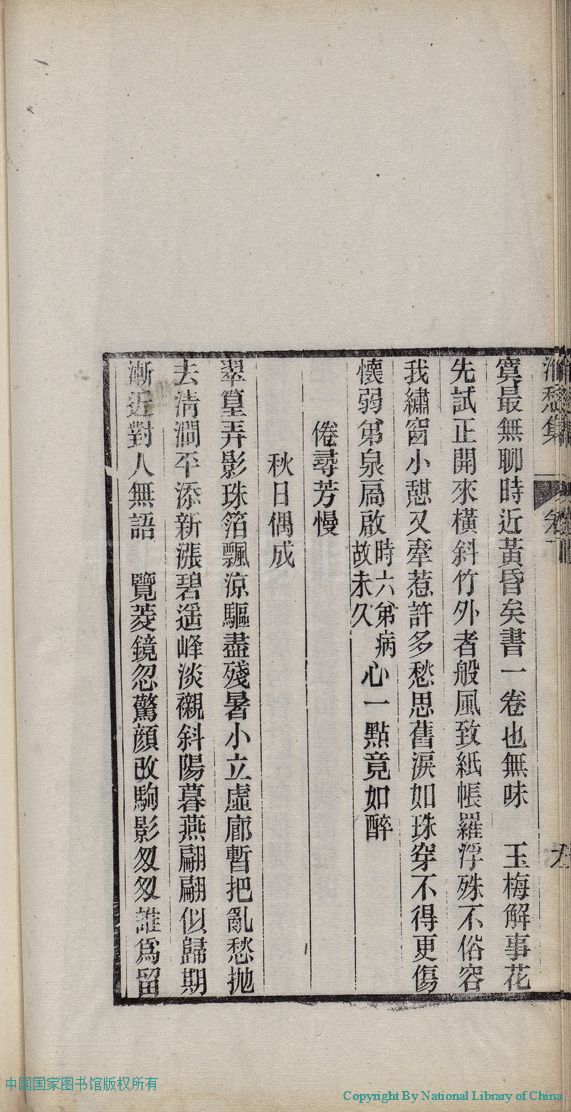 愁集
寞最無聊時近黃昏矣書一卷也無味　玉梅解事花
先試正開來橫斜竹外者般風致紙帳羅浮殊不俗容
我繡窗小憩又牽惹許多愁思舊淚如珠穿不得更傷
懷弱弟泉扃啟時六弟病故未久心一點竟如醉
倦尋芳慢
秋日偶成
翠篁弄影珠箔飄涼驅盡殘暑小立虛廊暫把亂愁拋
去清澗平添新漲碧遥峰淡襯斜陽暮燕翩翩似歸期
漸近對人無語　覽菱鏡忽驚顏改駒影匆匆誰爲留
中国国家图书馆版权所有
Copyright By National Library of China